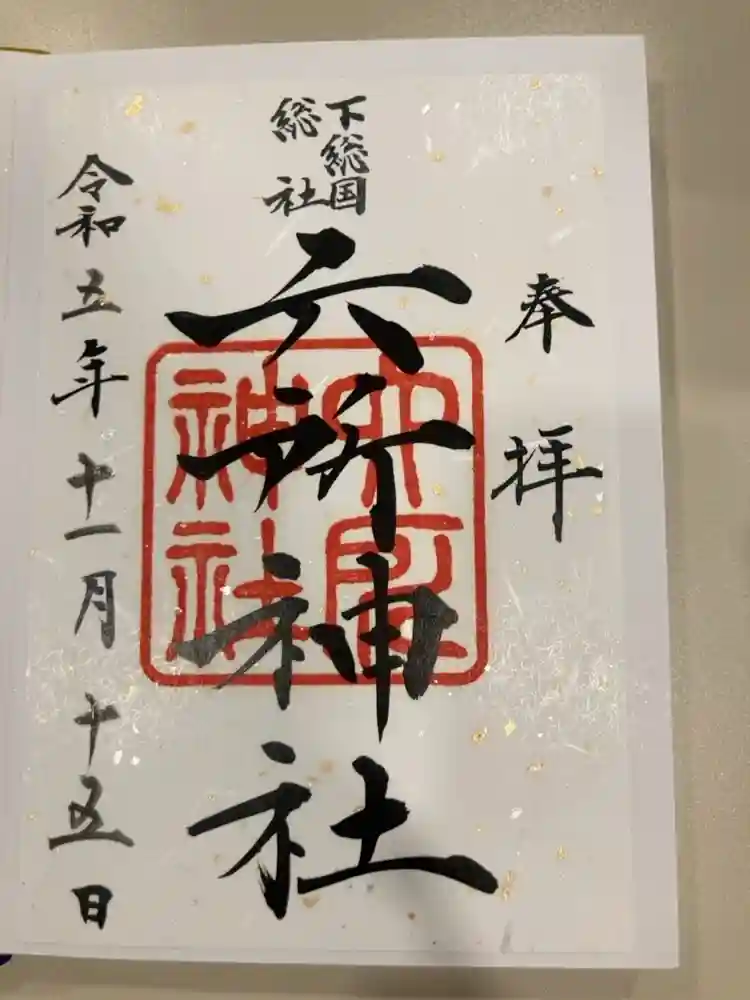 奉拝
下総国
総社
六所神社
六所
神社
令和五年十一月十五日